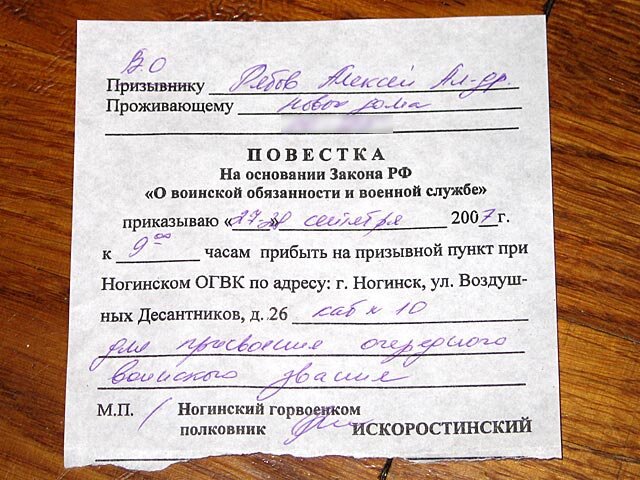 В.О
Призывнику Рябов Алексей Ал-др.
Проживающему новые дома
ПОВЕСТКА
На основании Закона РФ
«О воинской обязанности и военной службе»
приказываю «27-28» сентября 2007 г.
к 9 00 часам прибыть на призывной пункт при
Ногинском ОГВК по адресу: г. Ногинск, ул. Воздуш-
ных Десантников, д.26 каб № 10
для присвоения очередного
воинского звания
М.П. Ногинский горвоенком
полковник ИСКОРОСТИНСКИЙ